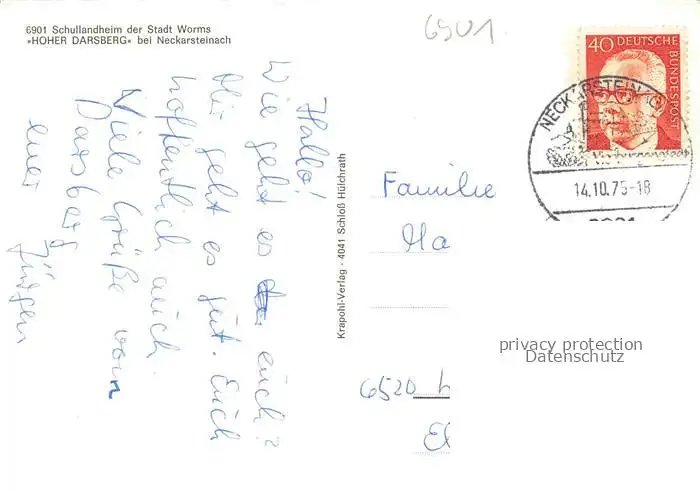 6901 Schullandheim der Stadt Worms
»HOHER DARSBERG« bei Neckarsteinach
6901
40 DEUTSCHE
BUNDESPOST
NECKARSTEINACH
14.10.75-18
Hallo!
Wie geht es euch?
Mir geht es gut. Euch
hoffentlich auch.
Viele Grüße vom
Darsberg
euer
Jürgen
Krapohl-Verlag - 4041 Schloß Hülchrath
Familie
Ma
6520
privacy protection
Datenschutz